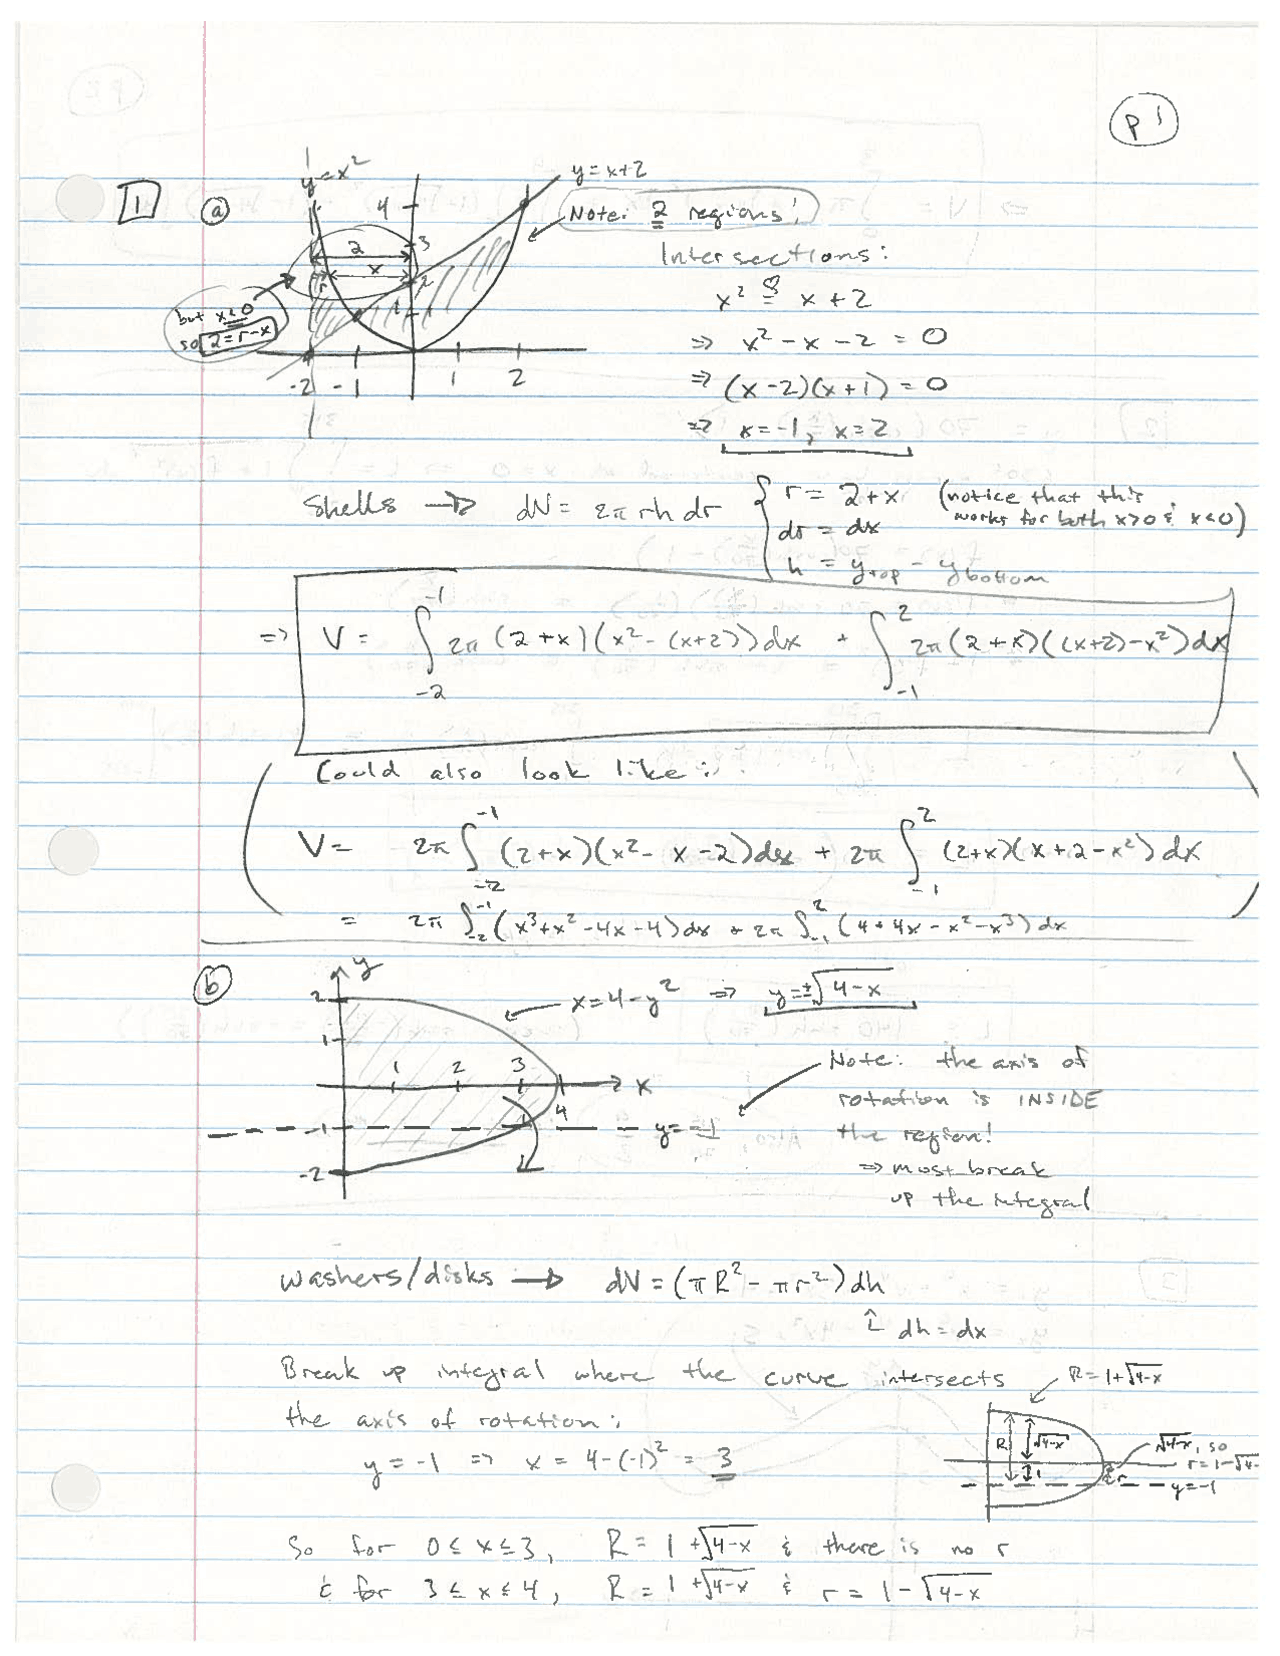 p 1
1
a
y=x²
y = x+2
4
3
2
1
2
x
r
but x<0
so 2=r-x
-2 -1 1 2
Note: 2 regions!
Intersections:
x² ≟ x + 2
⇒ x² - x - 2 = 0
⇒ (x - 2)(x + 1) = 0
⇒ x = -1, x = 2
Shells → dV = 2π r h dr { r = 2+x (notice that this works for both x>0 & x<0)
dr = dx
h = y_top - y_bottom
⇒ V = ∫_{-2}^{-1} 2π (2+x)(x² - (x+2)) dx + ∫_{-1}^{2} 2π (2+x)((x+2) - x²) dx
Could also look like:
V = 2π ∫_{-2}^{-1} (2+x)(x² - x - 2) dx + 2π ∫_{-1}^{2} (2+x)(x+2-x²) dx
= 2π ∫_{-2}^{-1} (x³+x²-4x-4) dx + 2π ∫_{-1}^{2} (4+4x-x²-x³) dx
b
y
2
1
1 2 3 4 x
-1
-2
x = 4-y² ⇒ y=±√(4-x)
y=-1
Note: the axis of
rotation is INSIDE
the region!
⇒ must break
up the integral
washers/disks → dV = (πR² - πr²) dh
↑ dh = dx
Break up integral where the curve intersects
the axis of rotation:
y = -1 ⇒ x = 4-(-1)² = 3
R = 1+√(4-x)
R
√(4-x)
1
r
√(4-x), so
r = 1-√4-
y=-1
So for 0 ≤ x ≤ 3, R = 1 + √(4-x) & there is no r
& for 3 ≤ x ≤ 4, R = 1 + √(4-x) & r = 1 - √(4-x)